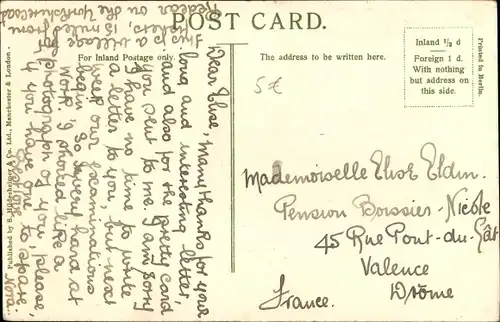 POST CARD.
For Inland Postage only.
The address to be written here.
Inland ½ d
Foreign 1 d.
With nothing
but address on
this side.
Printed in Berlin.
Published by S. Hildesheimer & Co. Ltd., Manchester & London.
5 €
Dear Elise, many thanks for your
long and interesting letter,
and also for the pretty card
you sent to me. I am sorry
I have no time to write
a letter to you, but next
week our examinations
begin, so very hard at
work. I should like a
photograph of you, please,
if you have one to spare.
Nora.
This is a village
miles from
Redcar on the Yorkshire coast
Mademoiselle Elise Eldin.
Pension Boissier-Nicole
45 Rue Pont-du-Gât
Valence
Drôme
France.